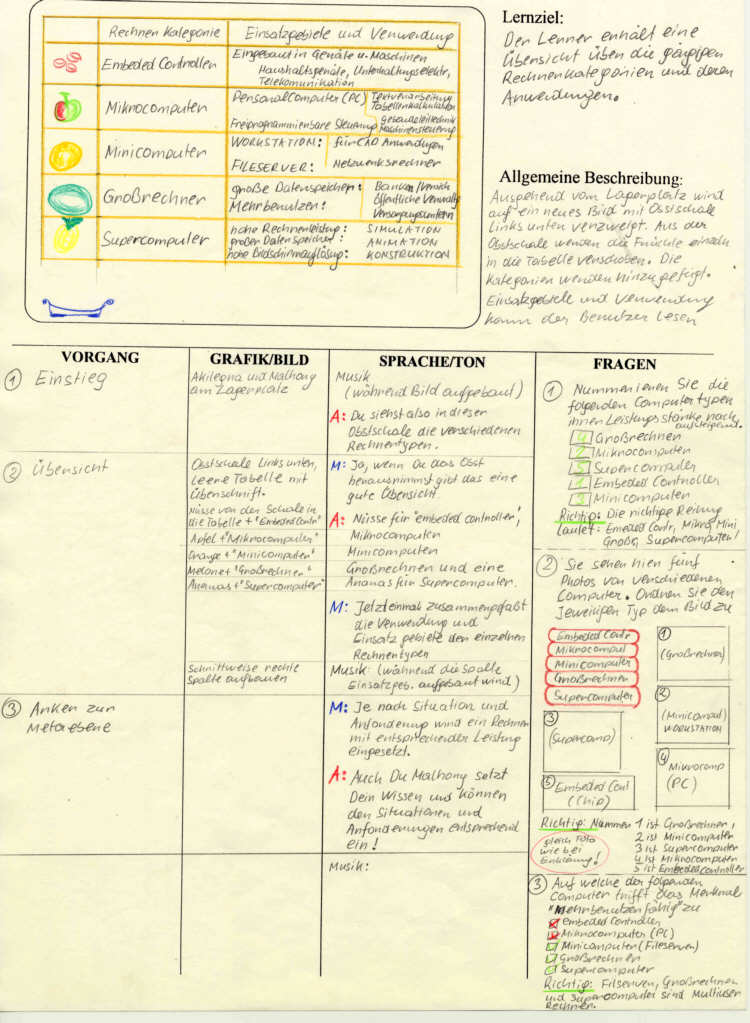 Rechner Kategorie
Einsatzgebiete und Verwendung
Embeded Controller
Eingebaut in Geräte u. Maschinen
Haushaltsgeräte, Unterhaltungselektr,
Telekomunikation
Mikrocomputer
Personal Computer (PC)
Textverarbeitung
Tabellenkalkulation
Freiprogrammierbare Steuerung
gebäudeleittechnik
Maschinensteuerung
Minicomputer
WORKSTATION: für CAD Anwendungen
FILESERVER: Netzwerksrechner
Großrechner
große Datenspeicher: Banken/Versich
Mehrbenutzer: öffentliche Verwaltg
Versorgungsuntern
Supercomputer
hohe Rechnerleistung: SIMULATION
großer Datenspeicher: ANIMATION
hohe Bildschirmauflösung: KONSTRUKTION
Lernziel:
Der Lerner erhält eine
Übersicht über die gängigen
Rechnerkategorien und deren
Anwendungen.
Allgemeine Beschreibung:
Ausgehend vom Lagerplatz wird
auf ein neues Bild mit Obstschale
Links unten verzweigt. Aus der
Obstschale werden die Früchte einzeln
in die Tabelle verschoben. Die
Kategorien werden hinzugefügt.
Einsatzgebiete und Verwendung
kann der Benutzer lesen
VORGANG
① Einstieg
② Übersicht
③ Anker zur
Metaebene
GRAFIK/BILD
am Lagerplatz
Obstschale Links unten,
Leere Tabelle mit
Überschrift.
Nüsse von der Schale in
die Tabelle + "Embeded Contr"
Apfel + "Mikrocomputer"
Orange + "Minicomputer"
Melone + "Großrechner"
Ananas + "Supercomputer"
Schrittweise rechte
Spalte aufbauen
SPRACHE/TON
Musik
(während Bild aufgebaut)
A: Du siehst also in dieser
Obstschale die verschiedenen
Rechnertypen.
M: Ja, wenn Du das Obst
herausnimmst gibt das eine
gute Übersicht.
A: Nüsse für "embeded controller",
Mikrocomputer
Minicomputer
Großrechner und eine
Ananas für Supercomputer.
M: Jetzt einmal zusammengefaßt
die Verwendung und
Einsatzgebiete der einzelnen
Rechnertypen
Musik: (während die Spalte
Einsatzgeb. aufgebaut wird)
M: Je nach Situation und
Anforderung wird ein Rechner
mit entsprechender Leistung
eingesetzt.
A: Auch Du Malhony setzt
Dein Wissen und können
den Situationen und
Anforderungen entsprechend
ein!
Musik:
FRAGEN
① Nummerieren Sie die
folgenden Computertypen
ihrer Leistungsstärke nach,
aufsteigend.
4 Großrechner
2 Mikrocomputer
5 Supercomputer
1 Embeded Controller
3 Minicomputer
Richtig: Die richtige Reihung
lautet: Emeded Contr, Mikro, Mini
Großr, Supercomputer!
② Sie sehen hier fünf
Photos von verschiedenen
Computer. Ordnen Sie den
Jeweiligen Typ dem Bild zu
Embeded Contr
Mikrocomput
Minicomputer
Großrechner
Supercomputer
① (Großrechner)
② (Minicomput)
WORKSTATION
③ (Supercomp)
④ Mikrocomp
(PC)
⑤ Embeded Cont
(Chip)
Richtig: Nummer 1 ist Großrechner,
2 ist Minicomputer
3 ist Supercomputer
4 ist Mikrocomputer
5 ist Embeded Controller
gleich Foto
wie bei
Erklärung!
③ Auf welche der folgenden
Computer trifft das Merkmal
"Mehrbenutzerfähig" zu
Embeded Controller
Mikrocomputer (PC)
Minicomputer (Fileserver)
Großrechner
Supercomputer
Richtig: Filserver, Großrechner
und Supercomputer sind Multiuser
Rechner.